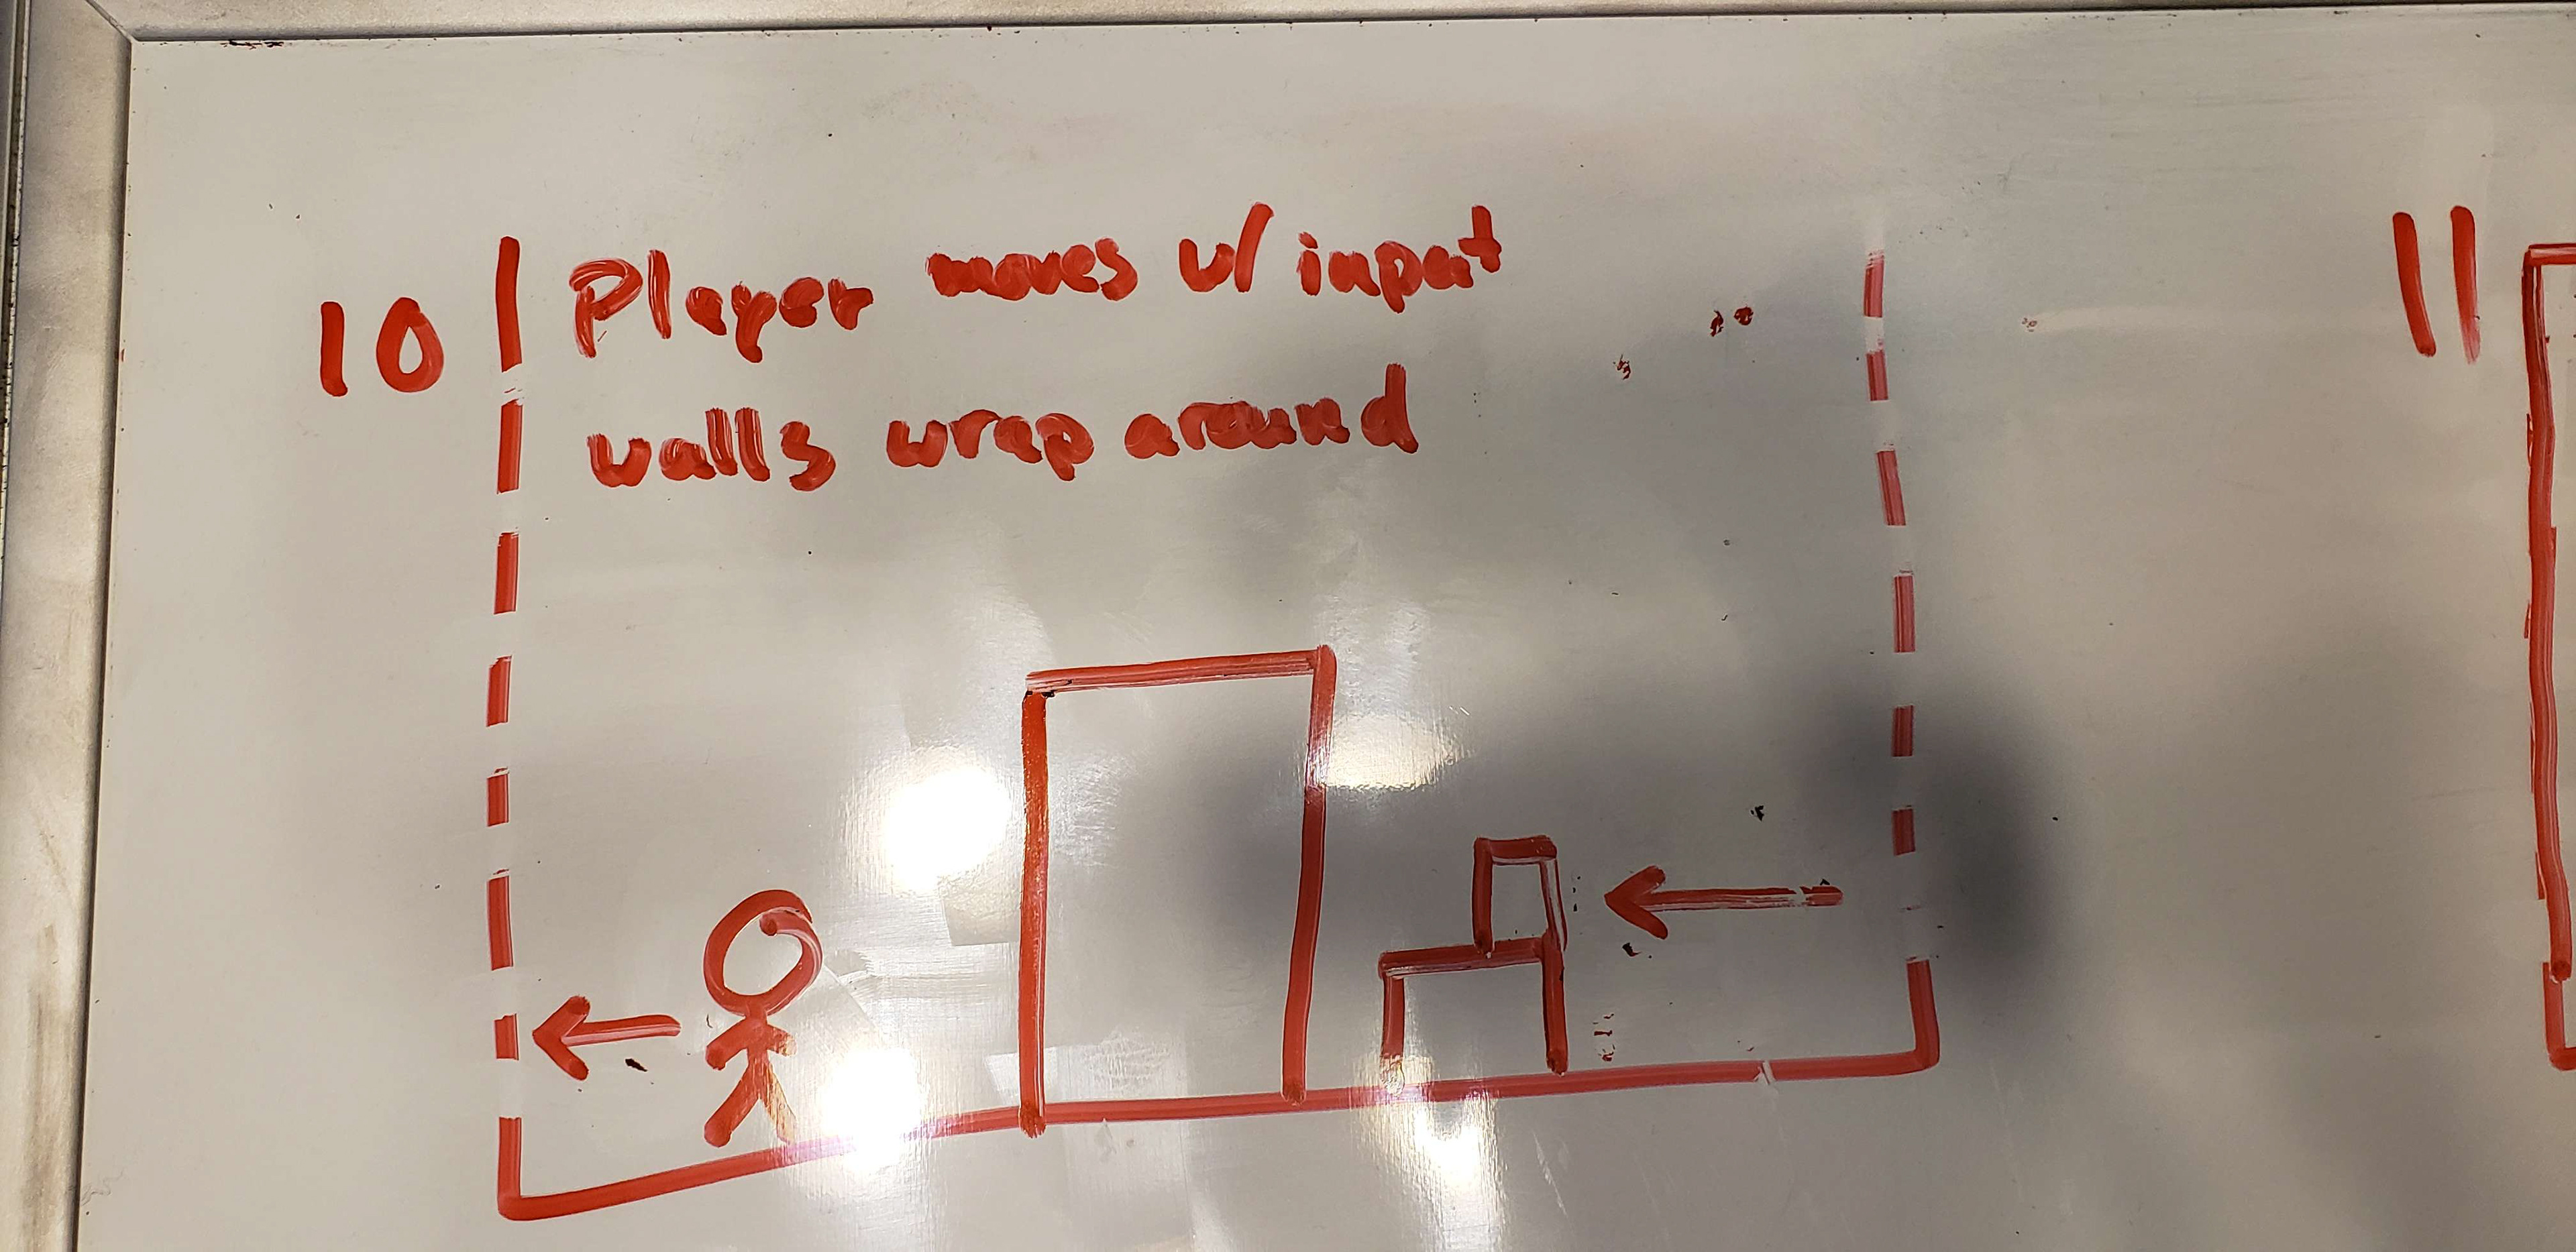 10
Player moves w/ input
walls wrap around
11